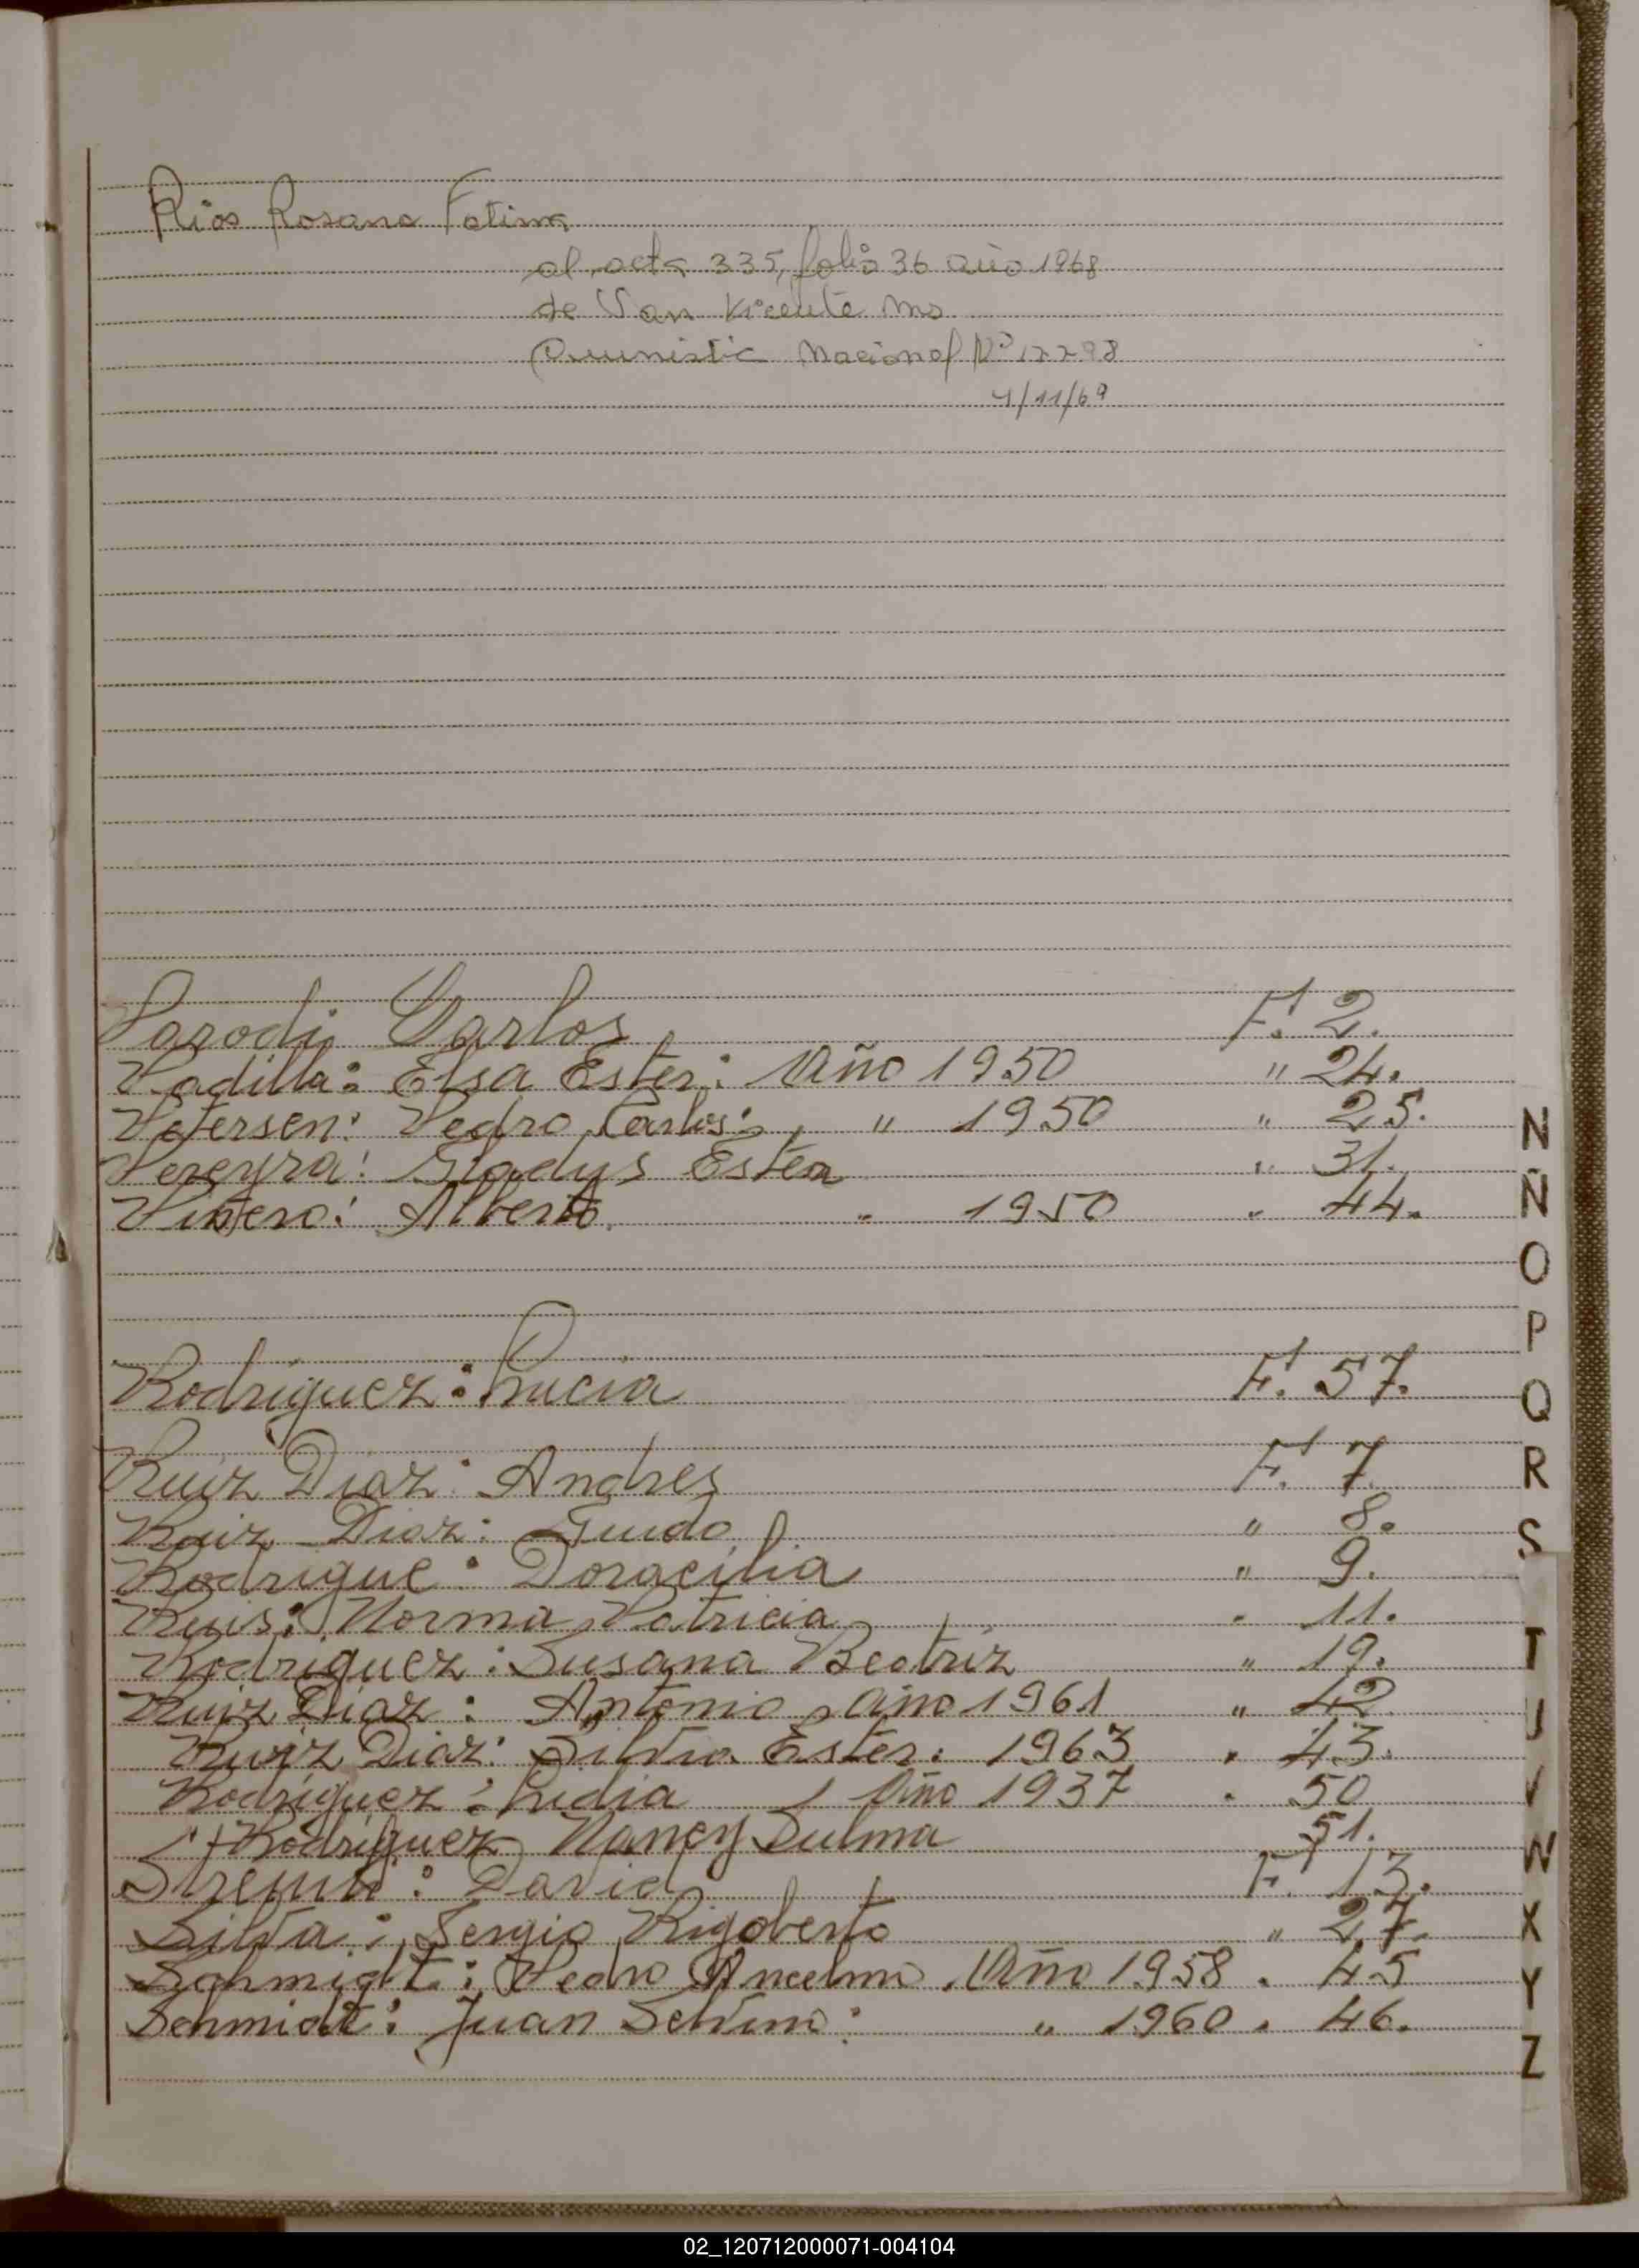 Rios Rosana Fatima
al acta 335, folio 36 año 1968
de San Vicente Ms
Nacional Nº 12298
4/11/69
Parodi Carlos F. 2.
Padilla: Elsa Ester: Año 1950 " 24.
Petersen: Pedro Carlos: " 1950 " 25.
Pereyra: Gladys Ester " 31.
Piñero: Alberto. " 1950 " 44.
Rodriguez: Lucia F. 57.
Ruiz Diaz: Andres F. 7.
Ruiz Diaz: Guido " 8.
Rodrigue: Doracilia " 9.
Ruis: Norma Patricia " 11.
Rodriguez: Susana Beatriz " 19.
Ruiz Diaz: Antonio, año 1961 " 42
Ruiz Diaz: Silvia Ester: 1963 " 43.
Rodriguez: Lidia Año 1937 " 50
Rodriguez Nancy Sulma 51.
David F. 13.
Silva: Sergio Rigoberto " 27.
Schmidt: Pedro Ancelmo. Año 1958 " 45
Schmidt: Juan " 1960 " 46.
N
Ñ
O
P
Q
R
S
T
U
V
W
X
Y
Z
02_120712000071-004104